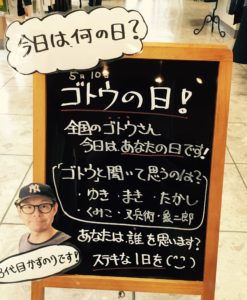 今日は、何の日?
5月10日
ゴトウの日!
全国のゴトウさん
今日はあなたの日です!
ゴトウと聞いて思うのは?
・ゆき・まき・たかし
くみこ・又兵衛・象二郎
あなたは、誰を思います?
ステキな1日を(^^)
3代目かずのりです!